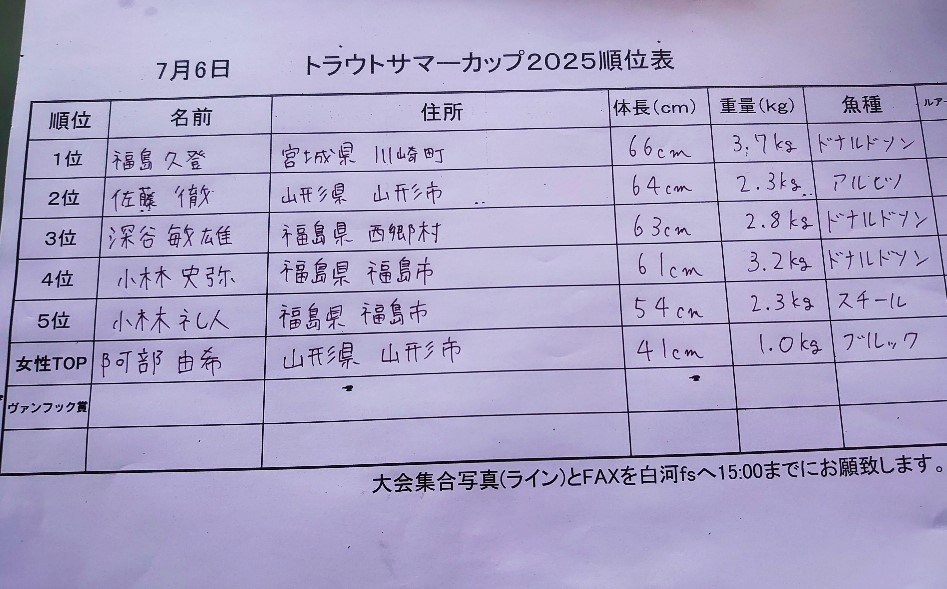 7月6日 トラウトサマーカップ2025順位表
順位 名前 住所 体長(cm) 重量(kg) 魚種 ルアー
1位 福島 久登 宮城県 川崎町 66cm 3.7kg ドナルドソン
2位 佐藤 徹 山形県 山形市 64cm 2.3kg アルビノ
3位 深谷 敏雄 福島県 西郷村 63cm 2.8kg ドナルドソン
4位 小林 史弥 福島県 福島市 61cm 3.2kg ドナルドソン
5位 小林 礼人 福島県 福島市 54cm 2.3kg スチール
女性TOP 阿部 由希 山形県 山形市 41cm 1.0kg ブルック
ヴァンフック賞
大会集合写真(ライン)とFAXを白河fsへ15:00までにお願致します。